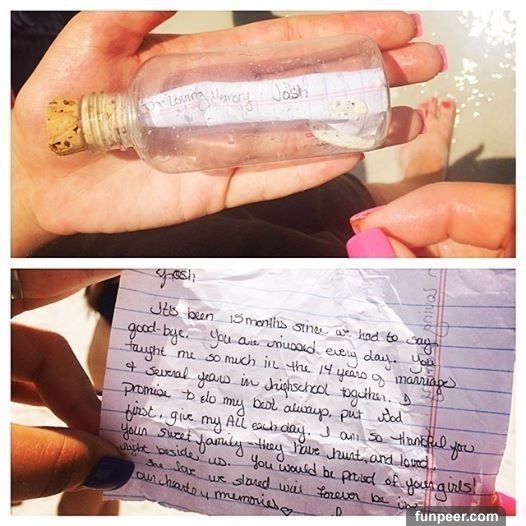 In Loving Memory Josh
Josh
It's been 15 months since we had to say
good-bye. You are missed every day. You
taught me so much in the 14 years of marriage
& several years in highschool together. I
promise to do my best always, put God
first, give my All each day. I am so thankful you
your sweet family they have hurt, and loved
right beside us. You would be proud of your girls!
The love we shared will forever be in
our hearts & memories
funpeer.com